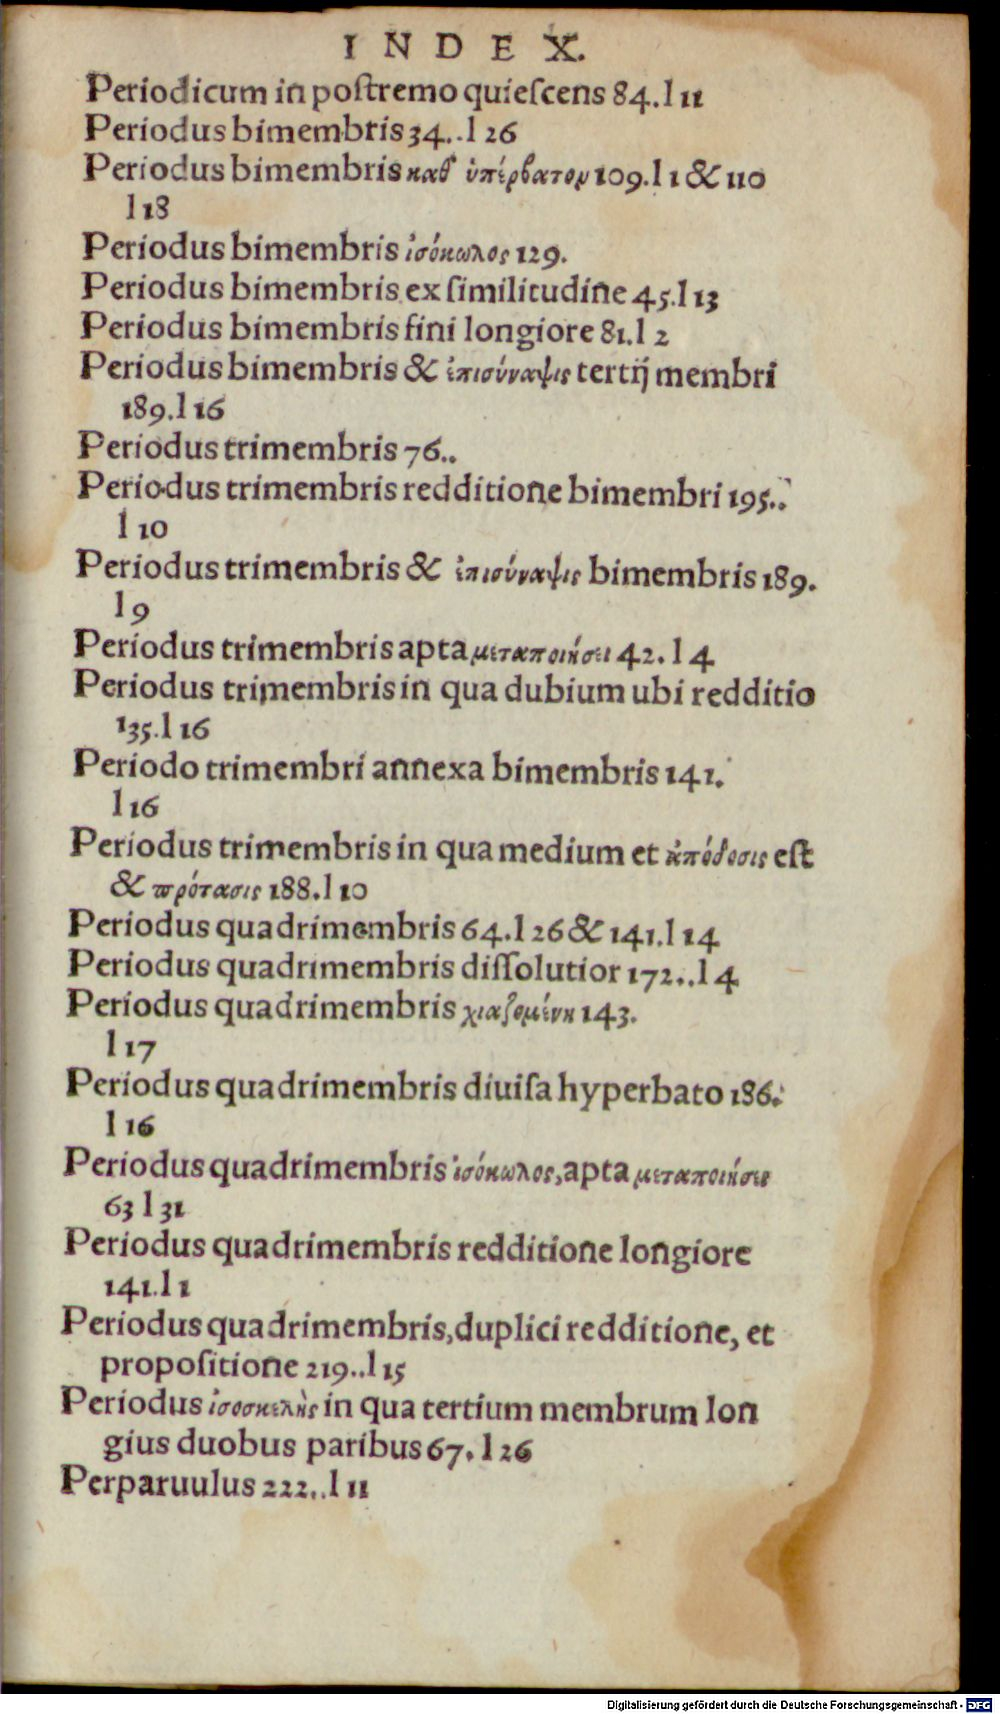 INDEX.
Periodicum in poſtremo quieſcens 84.l 11
Periodus bimembris 34..l 26
Periodus bimembris καθ' ὑπέρβατον 109.l 1 & 110
l 18
Periodus bimembris ἰσόκωλος 129.
Periodus bimembris ex ſimilitudine 45.l 13
Periodus bimembris fini longiore 81.l 2
Periodus bimembris & ἐπισύναψις tertij membri
189.l 16
Periodus trimembris 76..
Periodus trimembris redditione bimembri 195..
l 10
Periodus trimembris & ἐπισύναψις bimembris 189.
l 9
Periodus trimembris apta μεταποιήσει 42. l 4
Periodus trimembris in qua dubium ubi redditio
135.l 16
Periodo trimembri annexa bimembris 141.
l 16
Periodus trimembris in qua medium et ἀπόδοσις eſt
& πρότασις 188.l 10
Periodus quadrimembris 64.l 26 & 141.l 14
Periodus quadrimembris diſſolutior 172..l 4
Periodus quadrimembris χιαζομένη 143.
l 17
Periodus quadrimembris diuiſa hyperbato 186.
l 16
Periodus quadrimembris ἰσόκωλος, apta μεταποιήσει
63 l 31
Periodus quadrimembris redditione longiore
141.l 1
Periodus quadrimembris, duplici redditione, et
propoſitione 219..l 15
Periodus ἰσοσκελὴς in qua tertium membrum lon
gius duobus paribus 67. l 26
Perparuulus 222..l 11
Digitalisierung gefördert durch die Deutsche Forschungsgemeinschaft - DFG